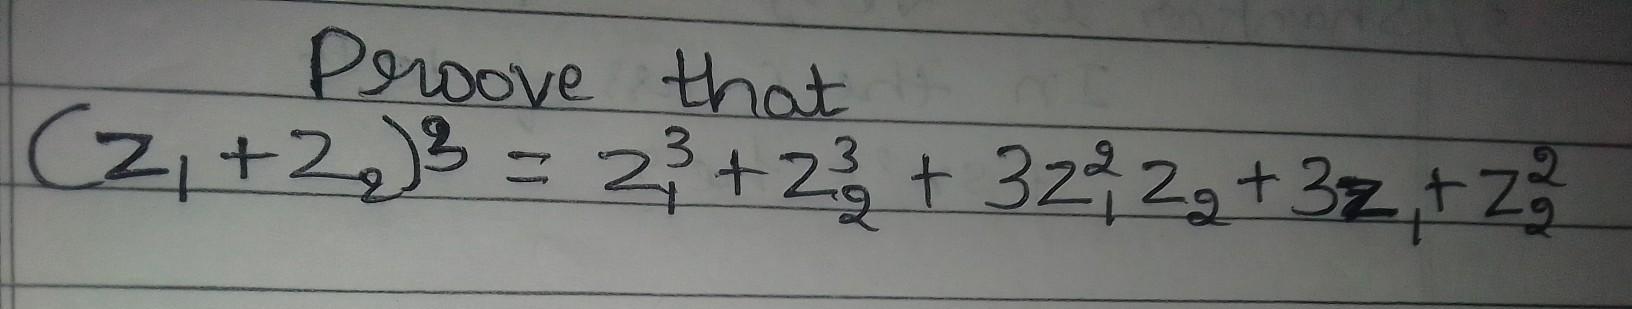 Proove that
(z₁+z₂)³ = z₁³+z₂³ + 3z₁²z₂+3z₁+z₂²